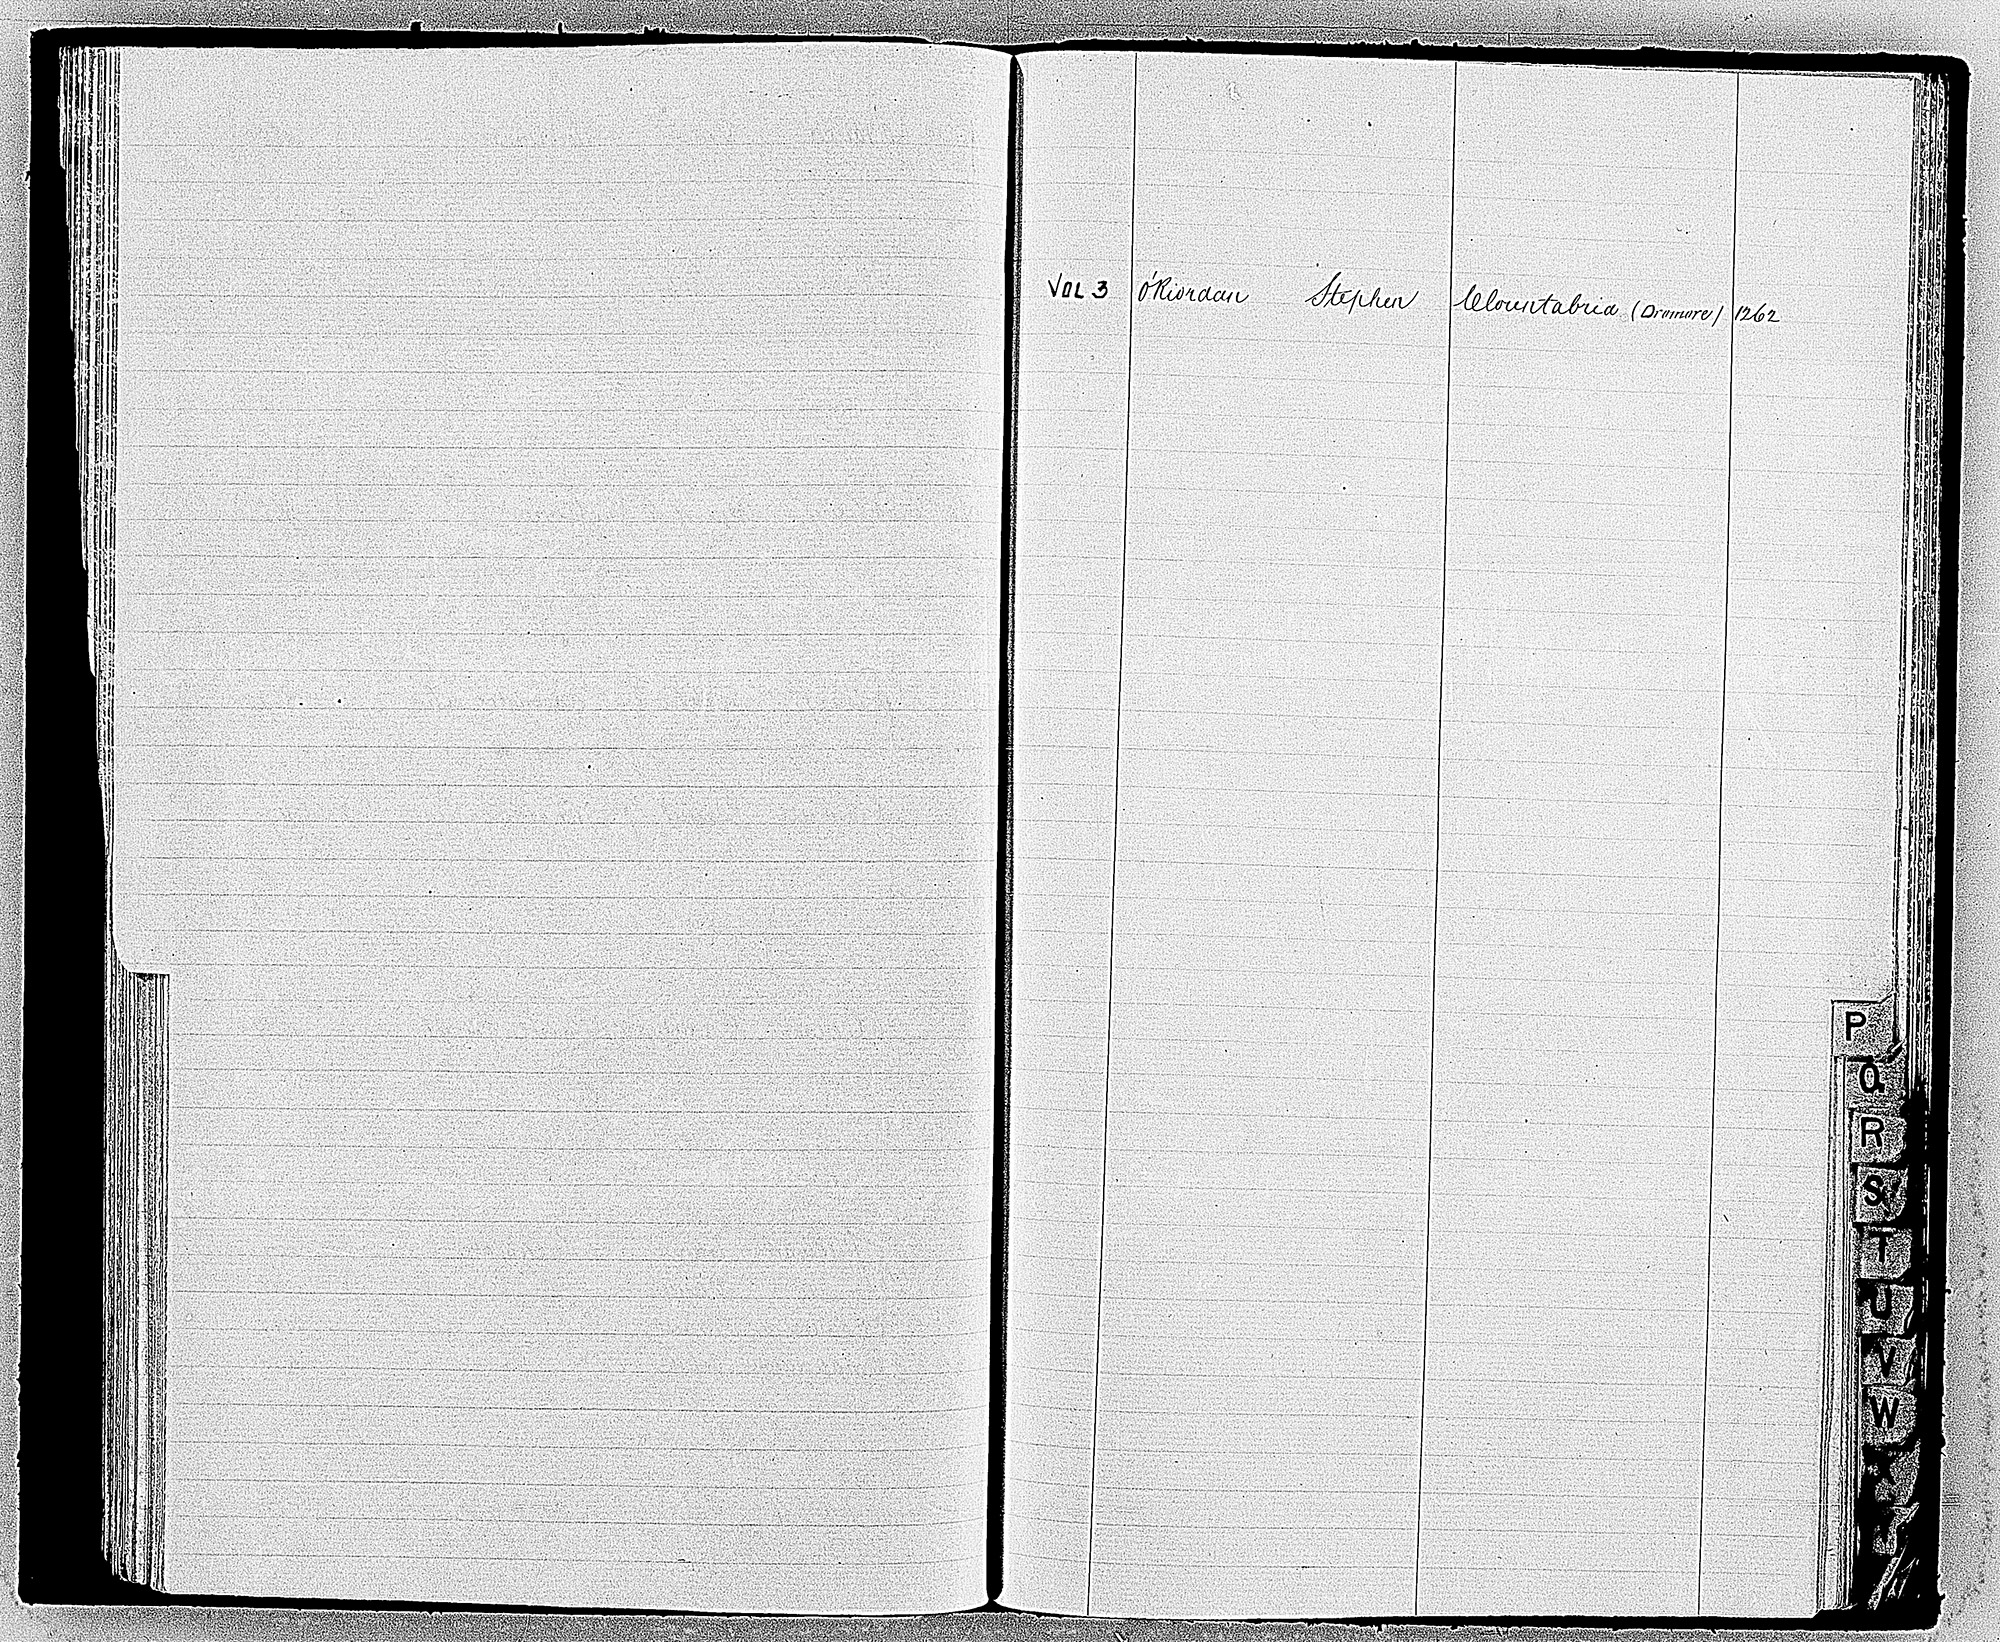 VOL 3 O'Riordan Stephen Clountabrid (Dromore) 1262
P
Q
R
S
T
U
V
W
X